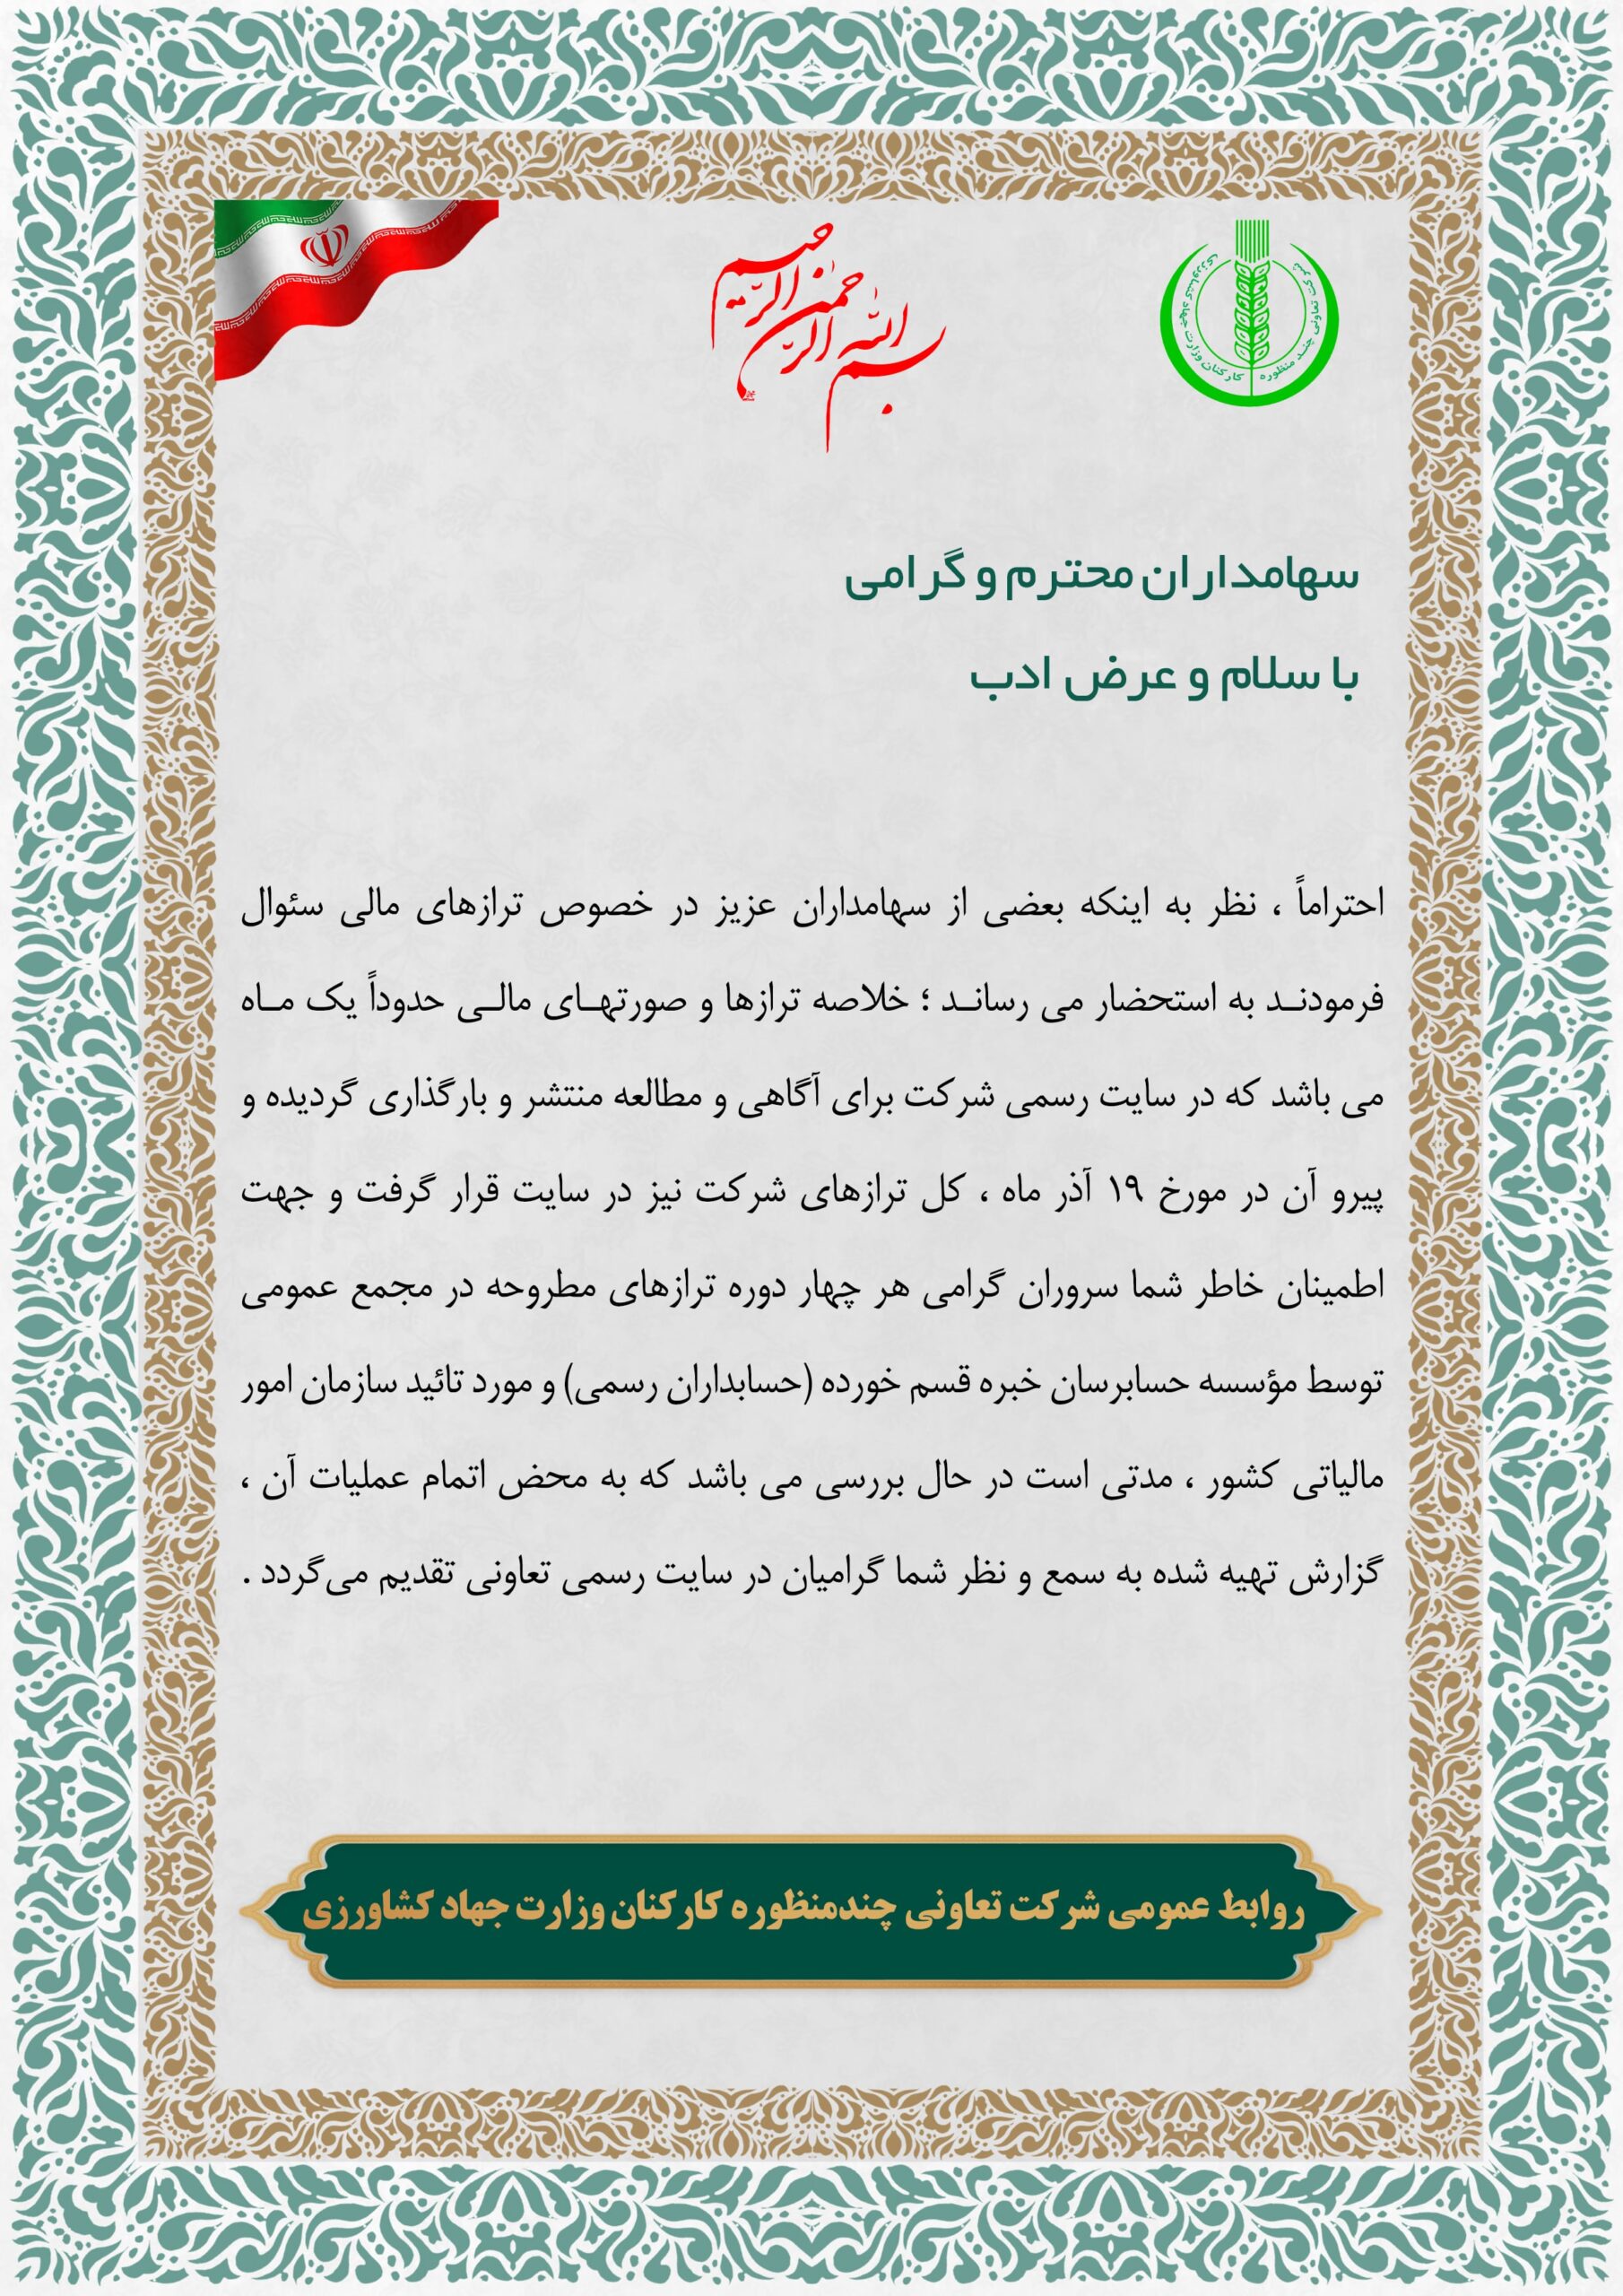 بسم الله الرحمن الرحیم
شرکت تعاونی چند منظوره کارکنان وزارت جهاد کشاورزی
سهامداران محترم و گرامی
با سلام و عرض ادب
احتراماً ، نظر به اینکه بعضی از سهامداران عزیز در خصوص ترازهای مالی سئوال
فرمودنــد به استحضار می رسانــد ؛ خلاصه ترازها و صورتهــای مالــی حدوداً یک مــاه
می باشد که در سایت رسمی شرکت برای آگاهی و مطالعه منتشر و بارگذاری گردیده و
پیرو آن در مورخ ۱۹ آذر ماه ، کل ترازهای شرکت نیز در سایت قرار گرفت و جهت
اطمینان خاطر شما سروران گرامی هر چهار دوره ترازهای مطروحه در مجمع عمومی
توسط مؤسسه حسابرسان خبره قسم خورده (حسابداران رسمی) و مورد تائید سازمان امور
مالیاتی کشور ، مدتی است در حال بررسی می باشد که به محض اتمام عملیات آن ،
گزارش تهیه شده به سمع و نظر شما گرامیان در سایت رسمی تعاونی تقدیم می‌گردد .
روابط عمومی شرکت تعاونی چندمنظوره کارکنان وزارت جهاد کشاورزی